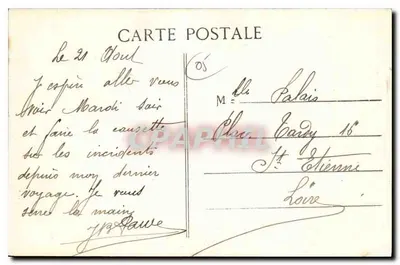 CARTE POSTALE
Le 21 Aout
J'espère aller vous
voir Mardi soir
et faire la causette
sur les incidents
depuis mon dernier
voyage. Je vous
serre la main
05
Mlle Palais
Place Tardy 16
St Etienne
Loire
CPARAMA.COM